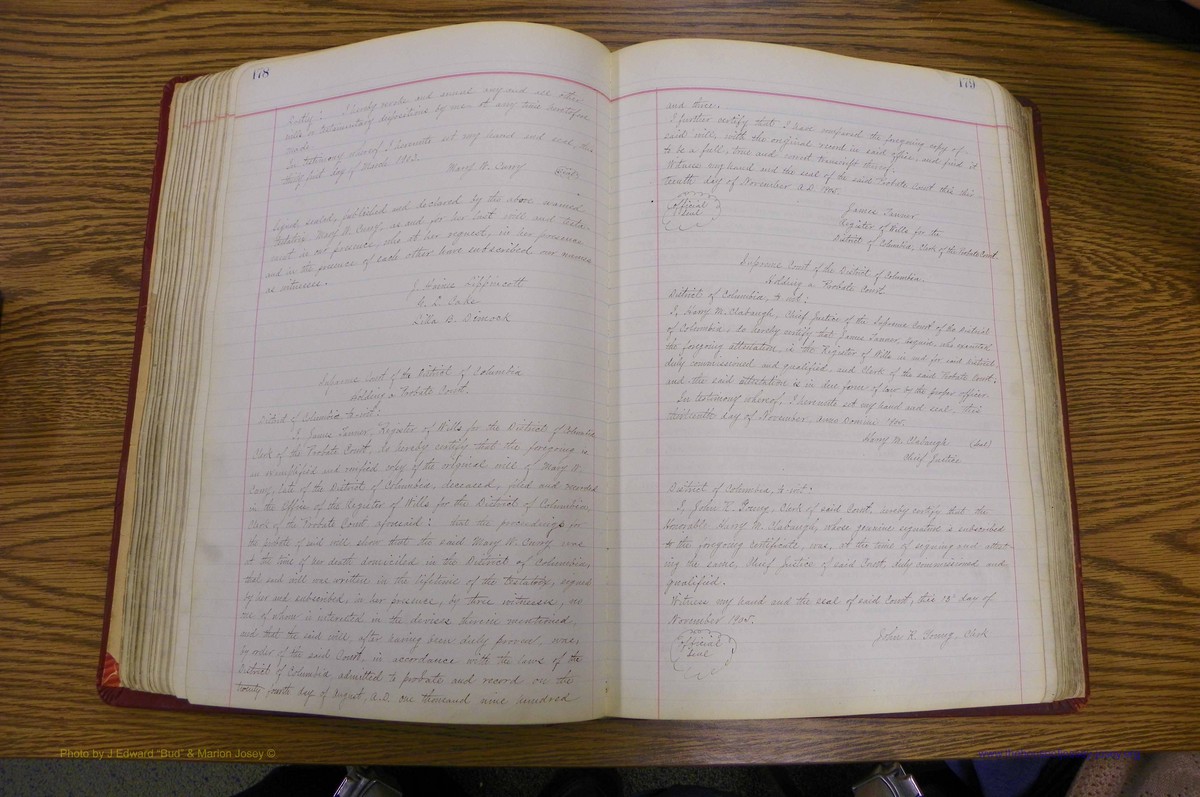 178
I hereby revoke and annul any and all other
wills or testamentary dispositions by me at any time heretofore
made
In testimony whereof I hereunto set my hand and seal, this
thirty first day of March 1903.
Mary W. Curry (Seal)
Signed, sealed, published and declared by the above named
testatrix, Mary W. Curry, as and for her last will and testa-
ment in our presence, who at her request, in her presence
and in the presence of each other have subscribed our names
as witnesses.
Lippincott
Lilla B. Dimock
Supreme Court of the District of Columbia
Holding a Probate Court.
District of Columbia to wit:
I, James Tanner, Register of Wills for the District of Columbia,
Clerk of the Probate Court, do hereby certify that the foregoing is
an exemplified and compared copy of the original will of Mary W.
Curry, late of the District of Columbia, deceased, filed and recorded
in the Office of the Register of Wills for the District of Columbia,
Clerk of the Probate Court aforesaid: that the proceedings for
the probate of said will show that the said Mary W. Curry was
at the time of her death domiciled in the District of Columbia,
that said will was written in the lifetime of the testatrix, signed
by her and subscribed, in her presence, by three witnesses, no
one of whom is interested in the devises therein mentioned,
and that the said will, after having been duly proved, was,
by order of the said Court, in accordance with the laws of the
District of Columbia admitted to probate and record on the
twenty fourth day of August, A.D. one thousand nine hundred
179
and three.
I further certify that I have compared the foregoing copy of
said will, with the original record in said office, and find it
to be a full, true and correct transcript thereof.
Witness my hand and the seal of the said Probate Court this thir-
teenth day of November A.D. 1905.
Official
Seal
James Tanner
Register of Wills for the
District of Columbia, Clerk of the Probate Court
Supreme Court of the District of Columbia.
Holding a Probate Court.
District of Columbia, to wit:
I, Harry M. Clabaugh, Chief Justice of the Supreme Court of the District
of Columbia, do hereby certify that James Tanner, Esquire, who executed
the foregoing attestation is the Register of Wills in and for said District,
duly commissioned and qualified, and Clerk of the said Probate Court;
and the said attestation is in due form of law by the proper officer.
In testimony whereof, I hereunto set my hand and seal, this
thirteenth day of November, Anno Domini 1905.
Harry M. Clabaugh (Seal)
Chief Justice
District of Columbia, to wit:
I, John R. Young, Clerk of said Court, hereby certify that the
Honorable Harry M. Clabaugh, whose genuine signature is subscribed
to the foregoing certificate, was, at the time of signing and attest-
ing the same, Chief Justice of said Court, duly commissioned and
qualified.
Witness my hand and the seal of said Court, this 13" day of
November 1905.
Official
Seal
John R. Young, Clerk
Photo by J Edward "Bud" & Marlon Josey ©